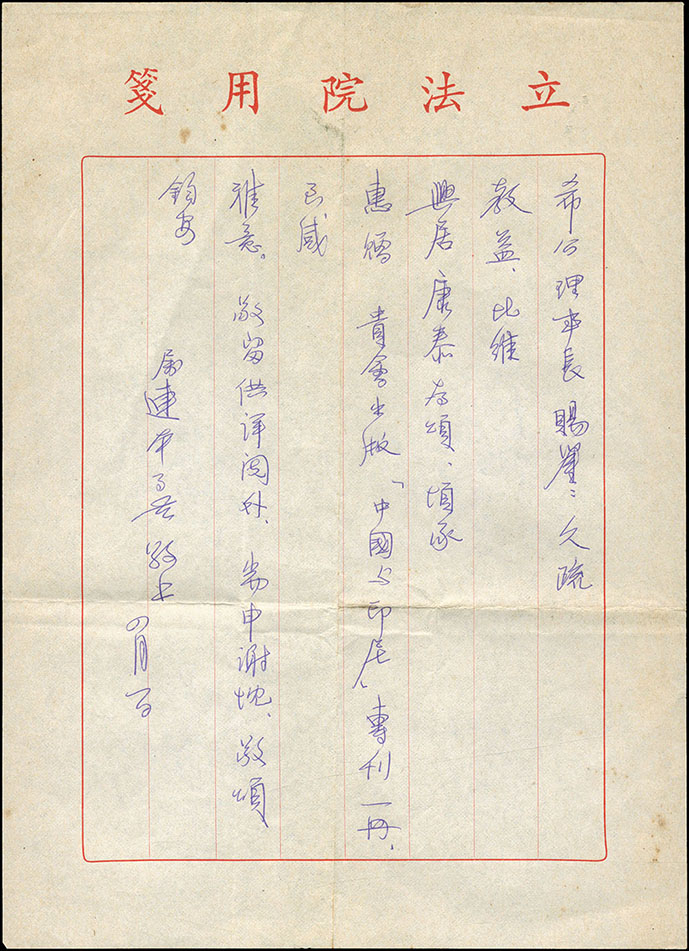 立法院用箋
希公理事長賜鑒：久疏
教益、比維
興居康泰為頌、頃承
惠贈 貴會出版「中國与印尼」專刊一冊、
至感
雅意。敬留供詳閱外、耑申謝忱、敬頌
鈞安
敬上 四月一日